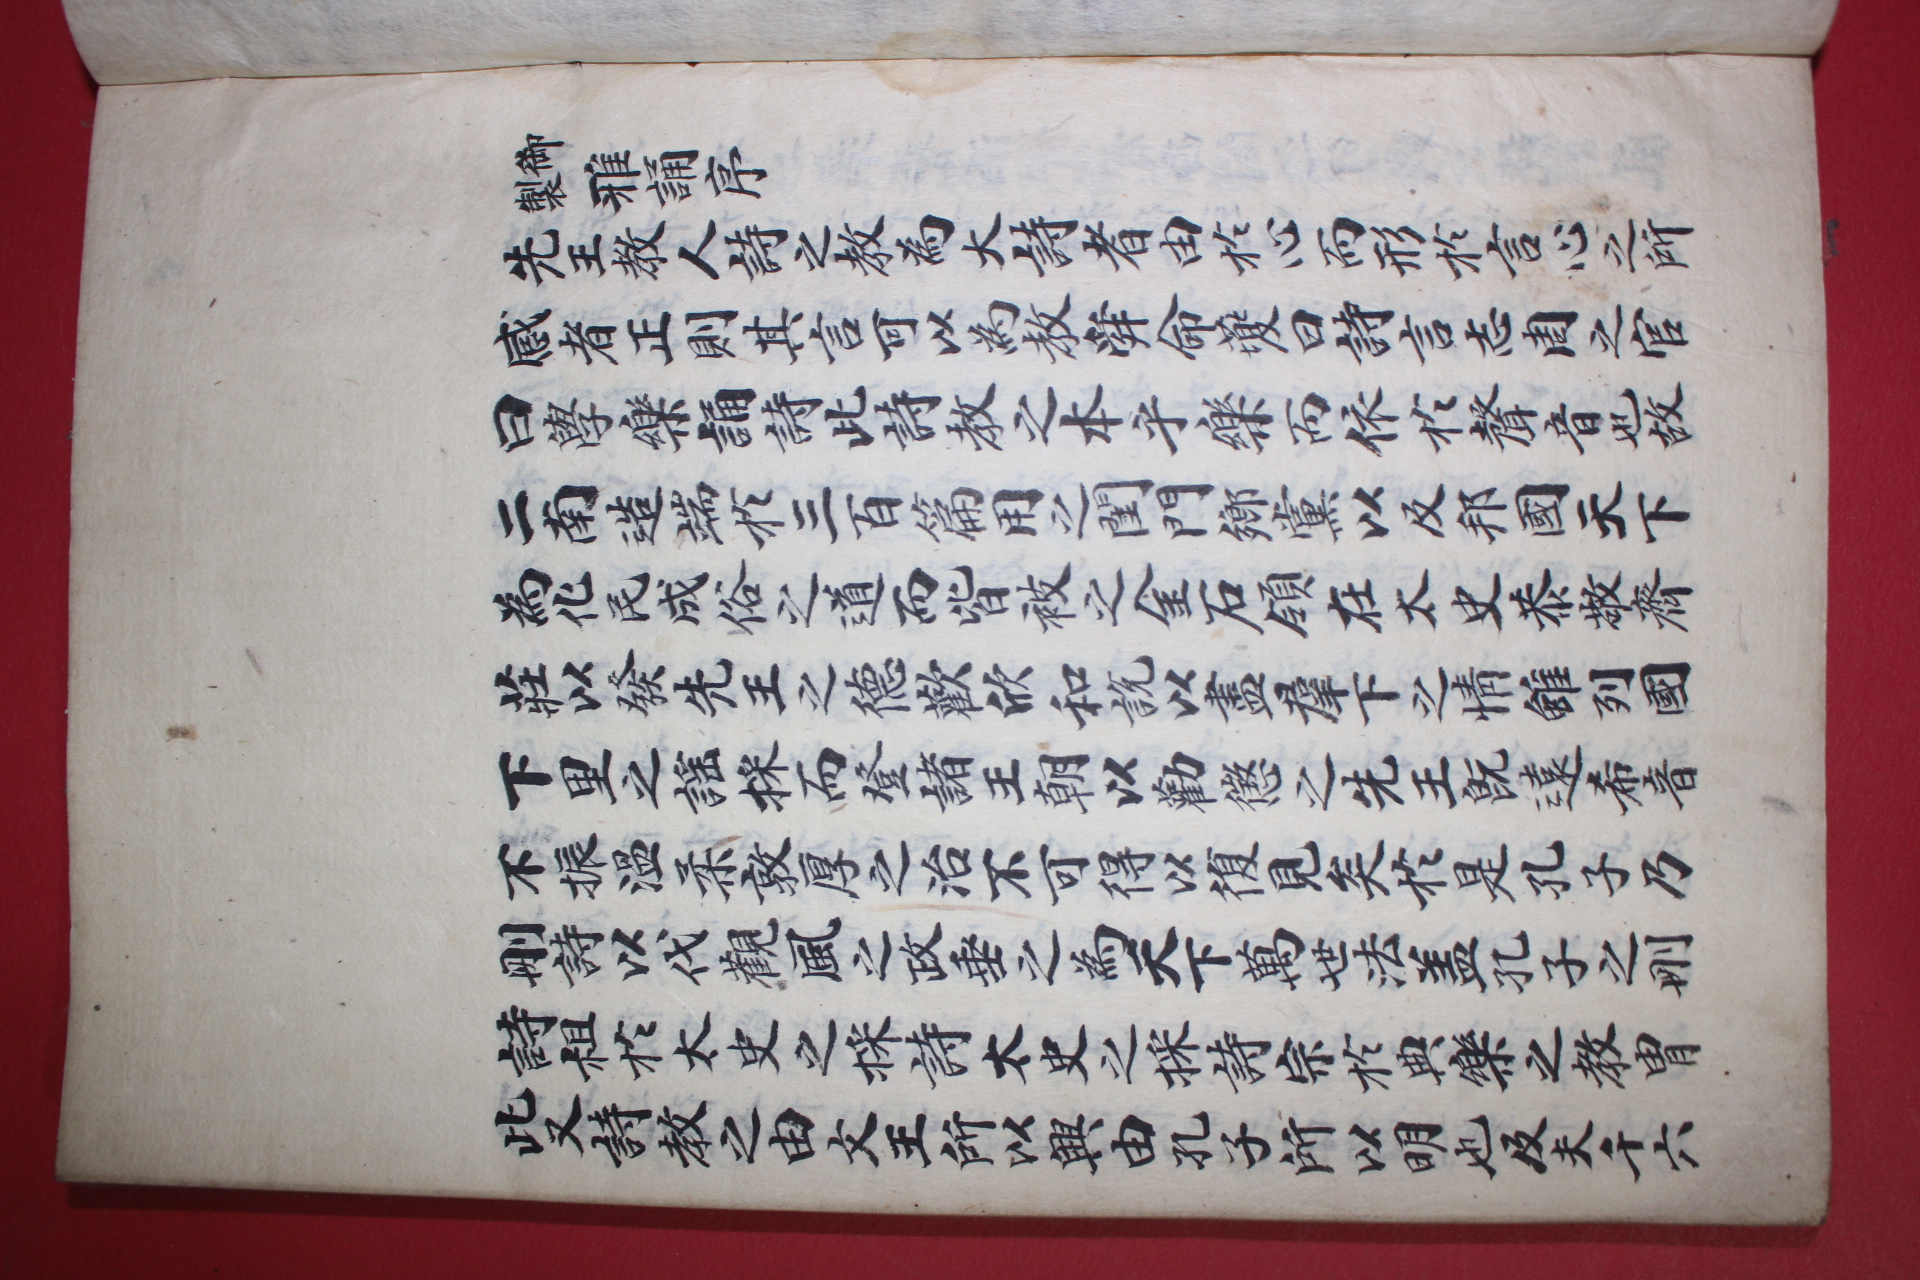 御製雅誦序
先王教人詩之教為大詩者由於心而形於言心之所
感者正則其言可以為教舜命夔曰詩言志周之官
曰學樂誦詩此詩教之本乎樂而依於聲音也故
二南造端於三百篇用之閨門鄉黨以及邦國天下
為化民成俗之道而皆被之金石領在太史恭敬齊
莊以發先王之德歡欣和說以盡羣下之情雖列國
下里之謠採而登諸王朝以勸懲之先王旣遠希音
不振溫柔敦厚之治不可得以復見矣於是孔子乃
刪詩以代觀風之政垂之為天下萬世法盖孔子之刪
詩祖於太史之採詩太史之採詩宗於典樂之教胄
此又詩教之由文王所以興由孔子所以明也及夫千六